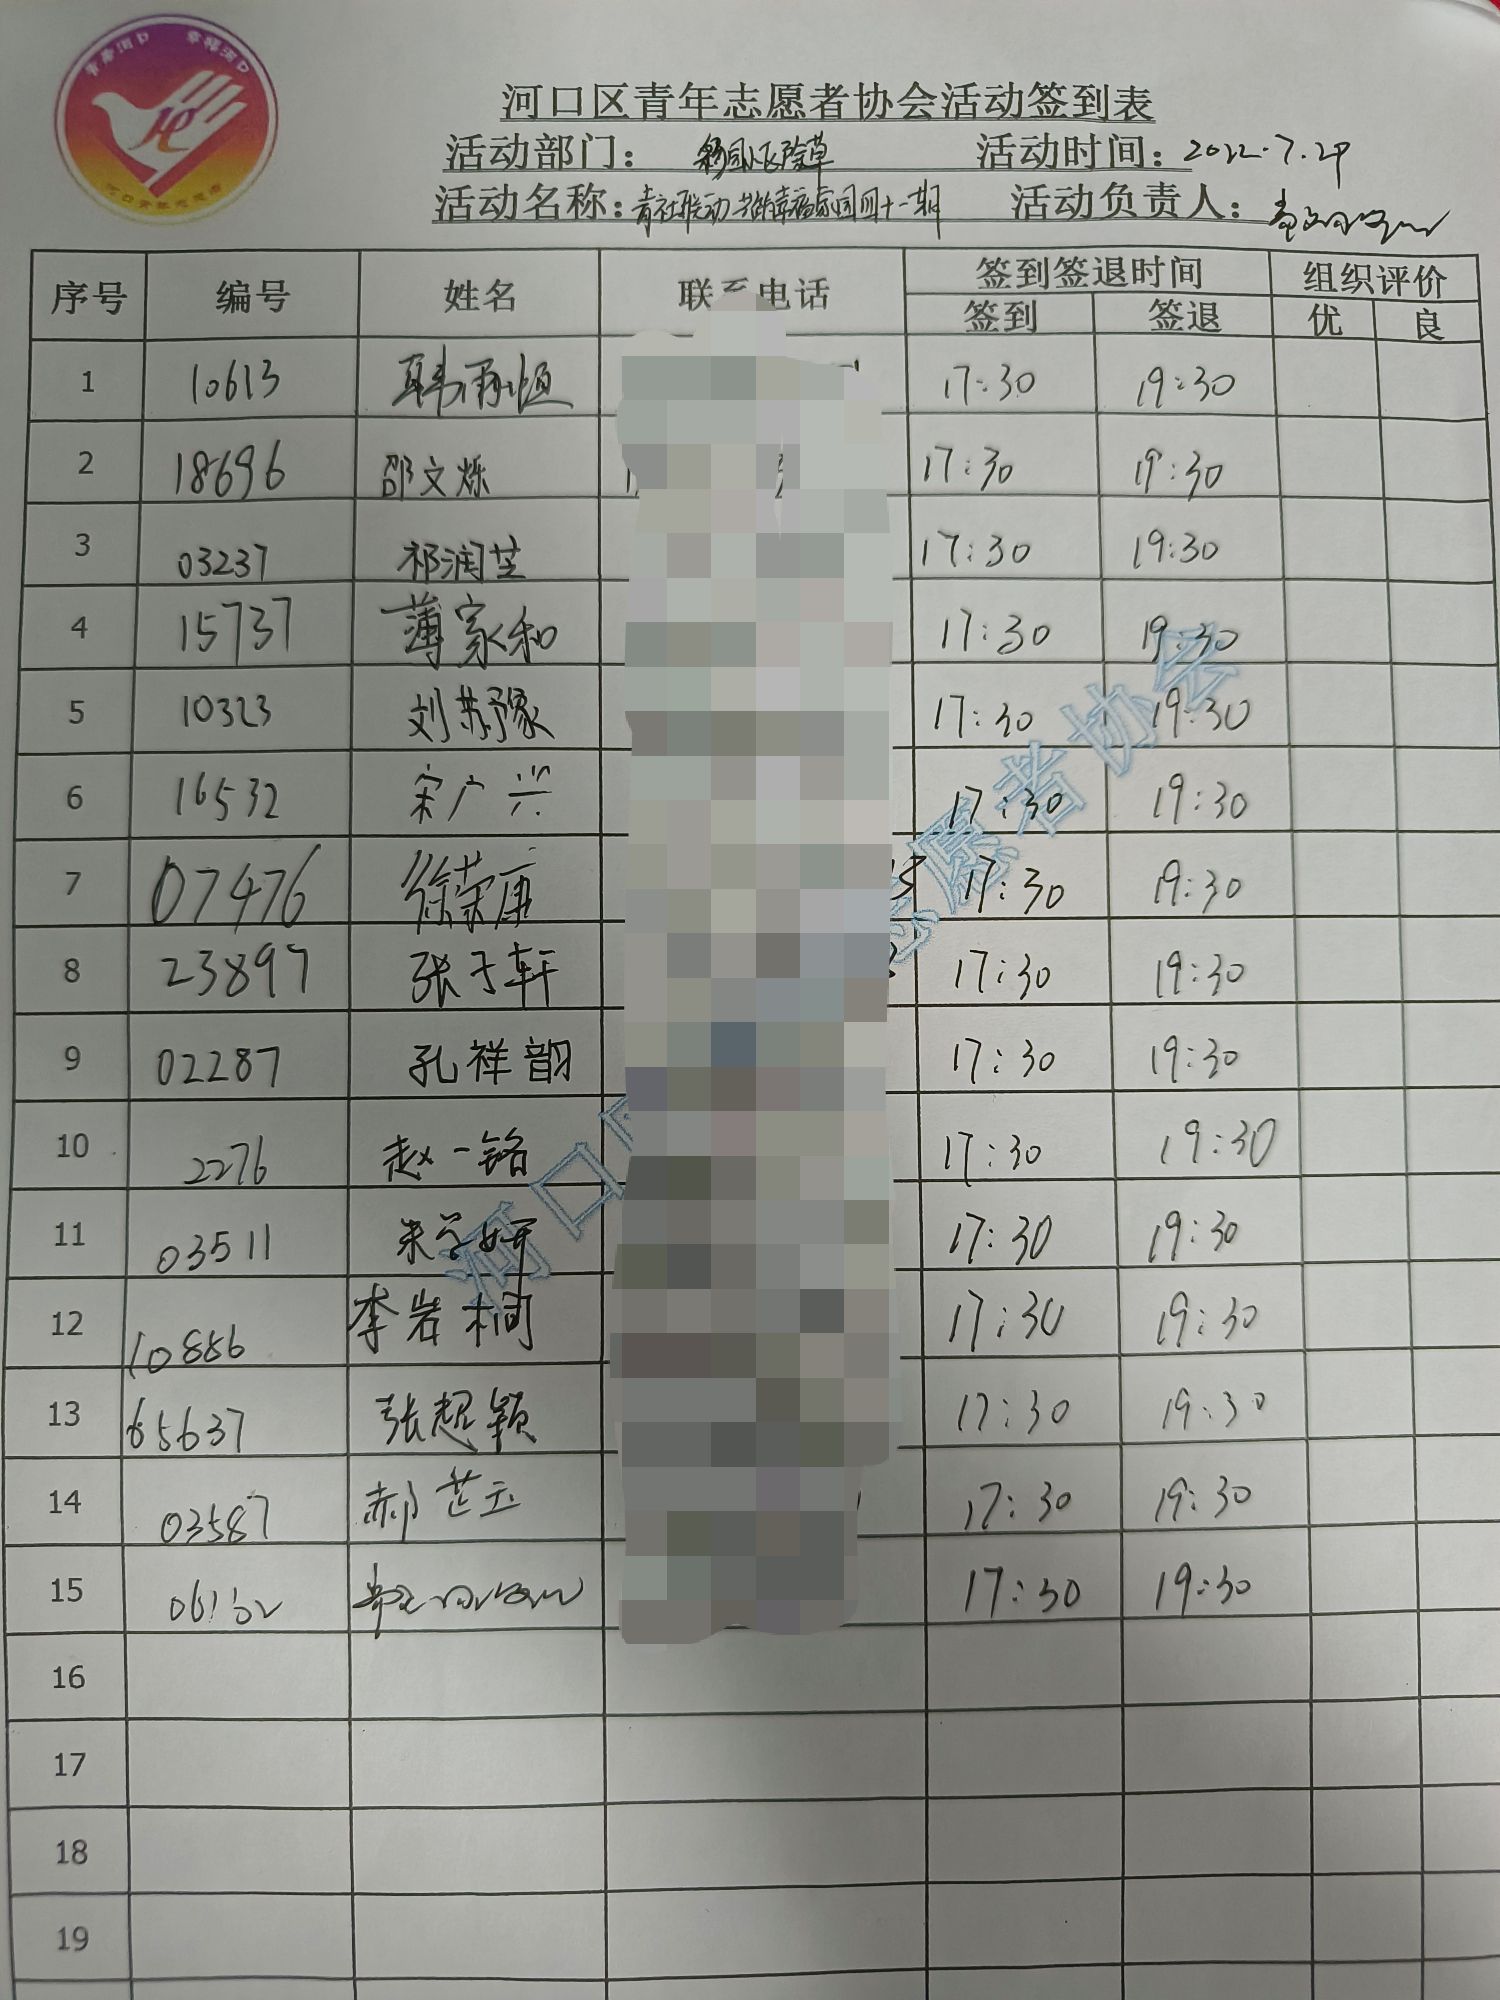 青春河口 幸福河口
河口区青年志愿者协会活动签到表
活动部门： 除草 活动时间：2022.7.29
活动名称：青社联动 共筑幸福家园四十一期 活动负责人：
序号 编号 姓名 联系电话 签到签退时间 组织评价
签到 签退 优 良
1 10613 韩雨恒 17:30 19:30
2 18696 邵文烁 17:30 19:30
3 03237 祁润芝 17:30 19:30
4 15737 薄家和 17:30 19:30
5 10323 刘苏豫 17:30 19:30
6 16532 宋广兴 17:30 19:30
7 07476 徐荣康 17:30 19:30
8 23897 张于轩 17:30 19:30
9 02287 孔祥韵 17:30 19:30
10 2276 赵一铭 17:30 19:30
11 03511 朱学妍 17:30 19:30
12 10886 李岩桐 17:30 19:30
13 65637 张超颖 17:30 19:30
14 03587 郝芷玉 17:30 19:30
15 17:30 19:30
16
17
18
19